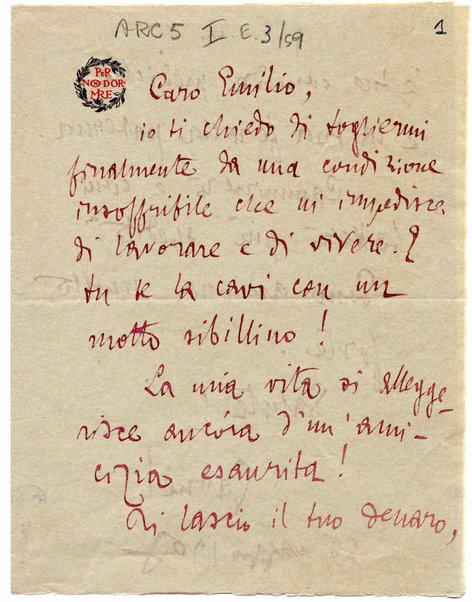 ARC 5 I E. 3/59
1
PER
NON DOR
MIRE
Caro Emilio,
io ti chiedo di togliermi
finalmente da una condizione
insoffribile che mi impedisce
di lavorare e di vivere. E
tu te la cavi con un
motto sibillino!
La mia vita si allegge-
risce ancóra d'un'ami-
cizia esaurita!
Ti lascio il tuo denaro,